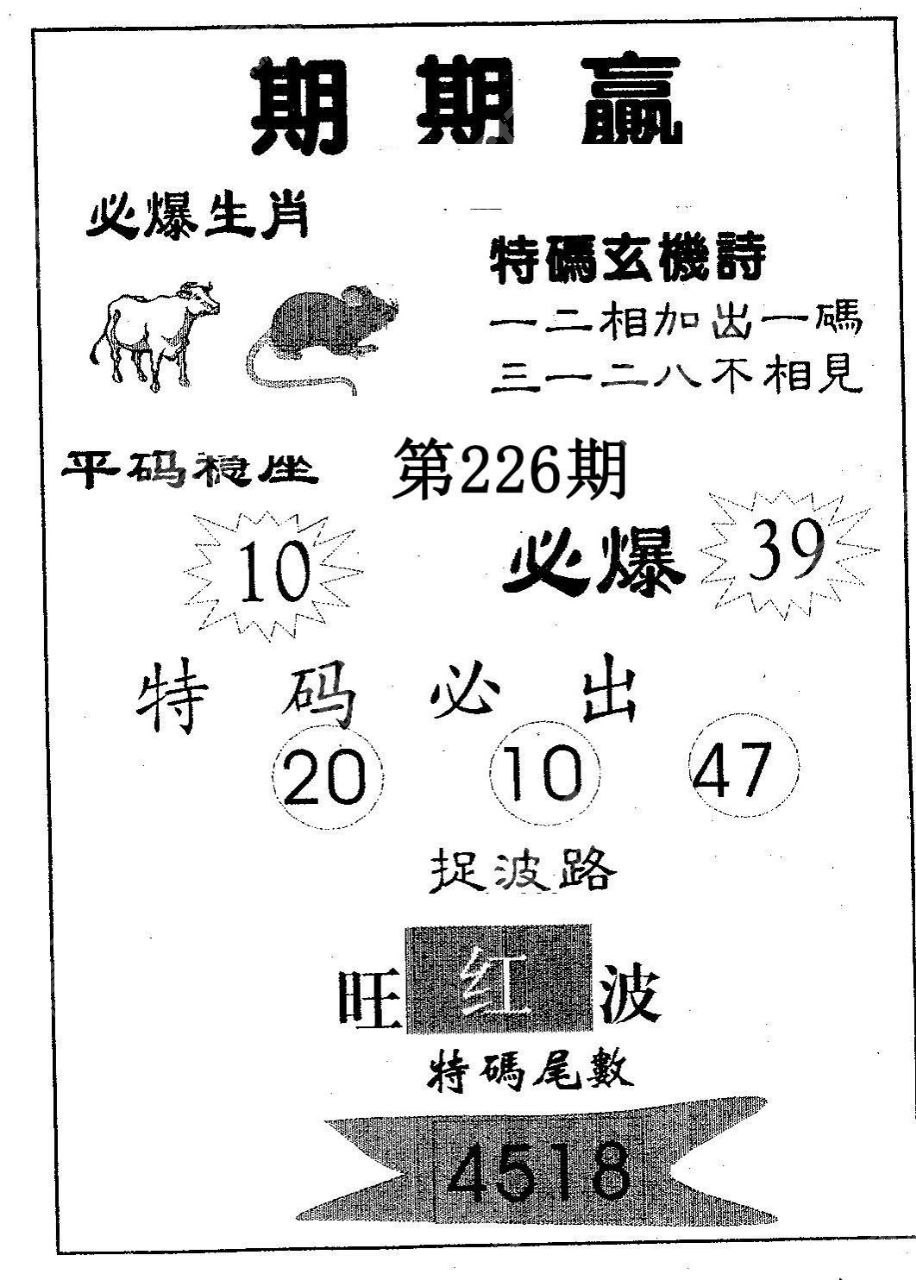 期期贏
必爆生肖
特碼玄機詩
一二相加出一碼
三一二八不相見
平码稳座
第226期
10
必爆
39
特码必出
20 10 47
捉波路
旺红波
特碼尾數
4518